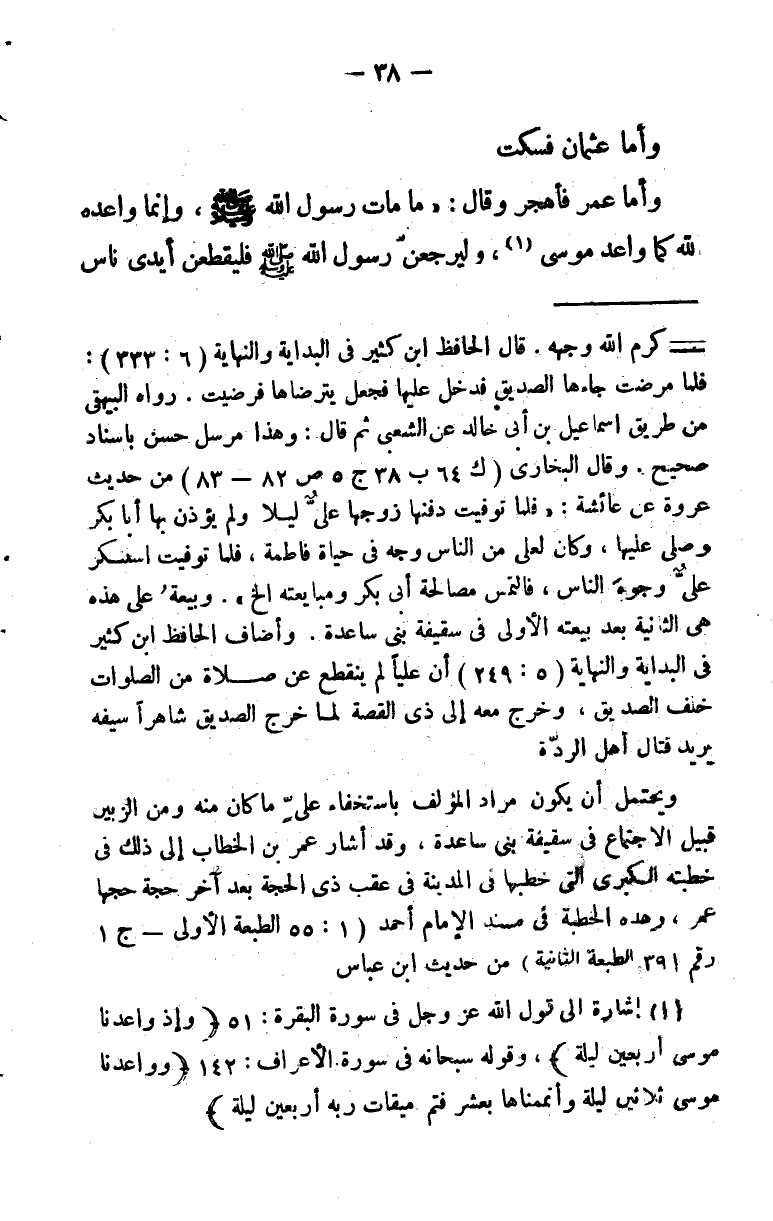 — ٣٨ —
وأما عثمان فسكت
وأما عمر فأهجر وقال : « ما مات رسول الله ﷺ ، وإنما واعده
لله كما واعد موسى (١) ، وليرجعنّ رسول الله ﷺ فليقطعن أيدى ناس
= كرم الله وجهه . قال الحافظ ابن كثير فى البداية والنهاية ( ٦ : ٣٣٣ ) :
فلما مرضت جاءها الصديق فدخل عليها فجعل يترضاها فرضيت . رواه البيهقى
من طريق اسماعيل بن أبى خالد عن الشعبى ثم قال : وهذا مرسل حسن باسناد
صحيح . وقال البخارى ( ك ٦٤ ب ٣٨ ج ٥ ص ٨٢ — ٨٣ ) من حديث
عروة عن عائشة : « فلما توفيت دفنها زوجها علىٌّ ليلا ولم يؤذن بها أبا بكر
وصلى عليها ، وكان لعلى من الناس وجه فى حياة فاطمة ، فلما توفيت استنكر
علىٌّ وجوهَ الناس ، فالتمس مصالحة أبى بكر ومبايعته الخ » . وبيعة على هذه
هى الثانية بعد بيعته الأولى فى سقيفة بنى ساعدة . وأضاف الحافظ ابن كثير
فى البداية والنهاية ( ٥ : ٢٤٩ ) أن علياً لم ينقطع عن صلاة من الصلوات
خلف الصديق ، وخرج معه إلى ذى القصة لما خرج الصديق شاهراً سيفه
يريد قتال أهل الردّة
ويحتمل أن يكون مراد المؤلف باستخفاء علىٍّ ما كان منه ومن الزبير
قبيل الاجتماع فى سقيفة بنى ساعدة ، وقد أشار عمر بن الخطاب إلى ذلك فى
خطبته الكبرى التى خطبها فى المدينة فى عقب ذى الحجة بعد آخر حجة حجها
عمر ، وهذه الخطبة فى مسند الإمام أحمد ( ١ : ٥٥ الطبعة الأولى — ج ١
رقم ٣٩١ الطبعة الثانية ) من حديث ابن عباس
(١) إشارة الى قول الله عز وجل فى سورة البقرة : ٥١ ﴿ وإذ واعدنا
موسى أربعين ليلة ﴾ ، وقوله سبحانه فى سورة الأعراف : ١٤٢ ﴿ وواعدنا
موسى ثلاثين ليلة وأتممناها بعشر فتم ميقات ربه أربعين ليلة ﴾